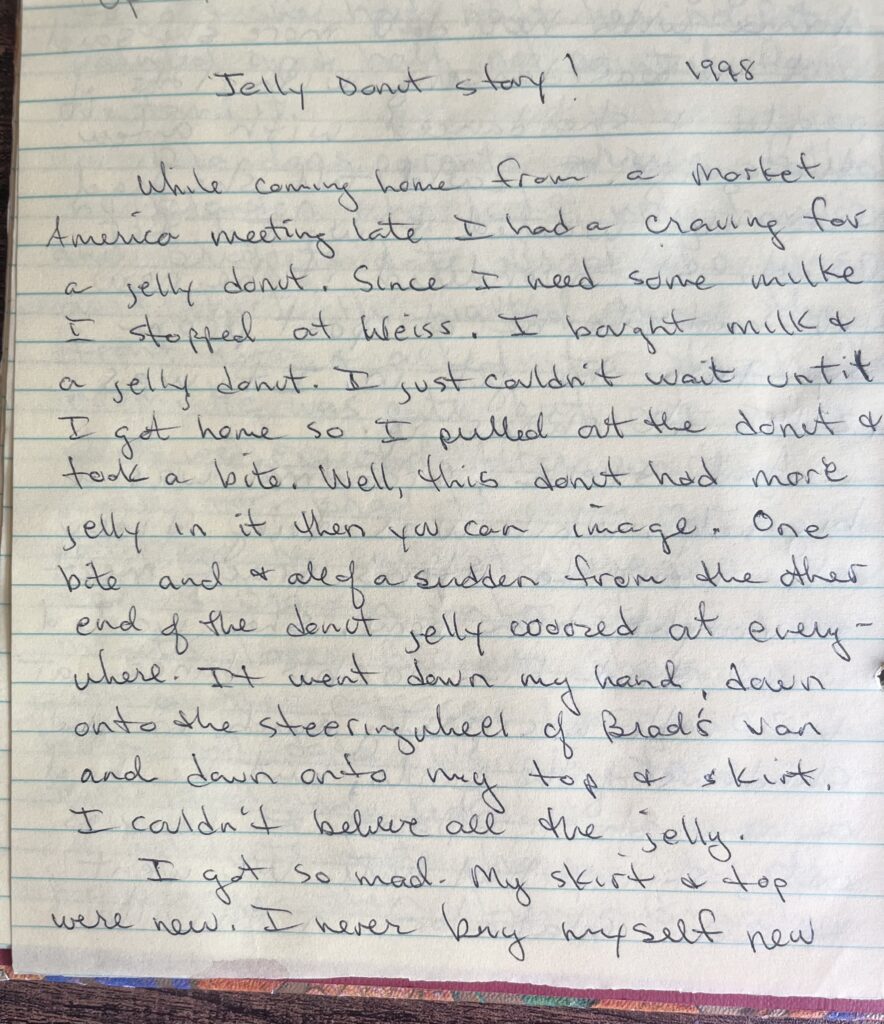 Jelly Donut story! 1998
While coming home from a Market
America meeting late I had a craving for
a jelly donut. Since I need some milke
I stopped at Weiss. I bought milk &
a jelly donut. I just couldn't wait until
I got home so I pulled out the donut &
took a bite. Well, this donut had more
jelly in it then you can image. One
bite and & all of a sudden from the other
end of the donut jelly oooozed out every-
where. It went down my hand, down
onto the steeringwheel of Brad's van
and down onto my top & skirt.
I couldn't believe all the jelly.
I got so mad. My skirt & top
were new. I never buy myself new